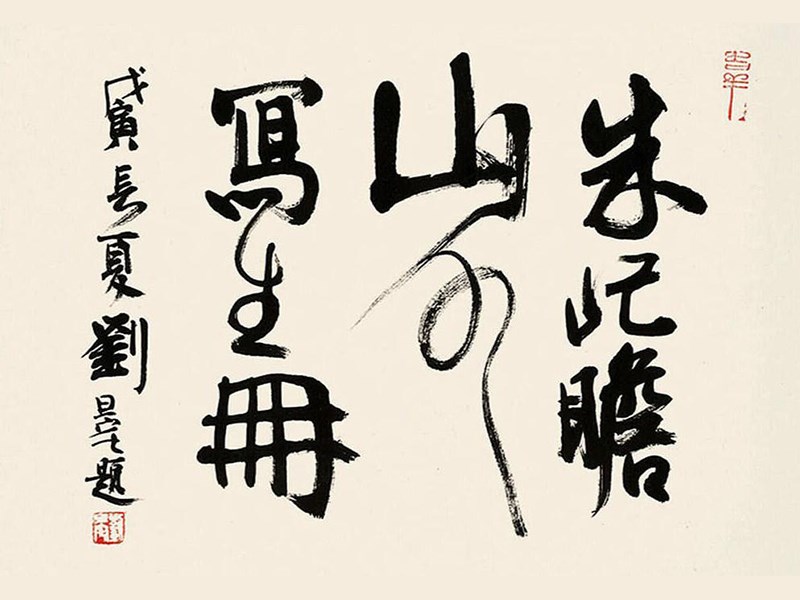 朱屺瞻
山水
寫生冊
戊寅長夏劉旦宅題